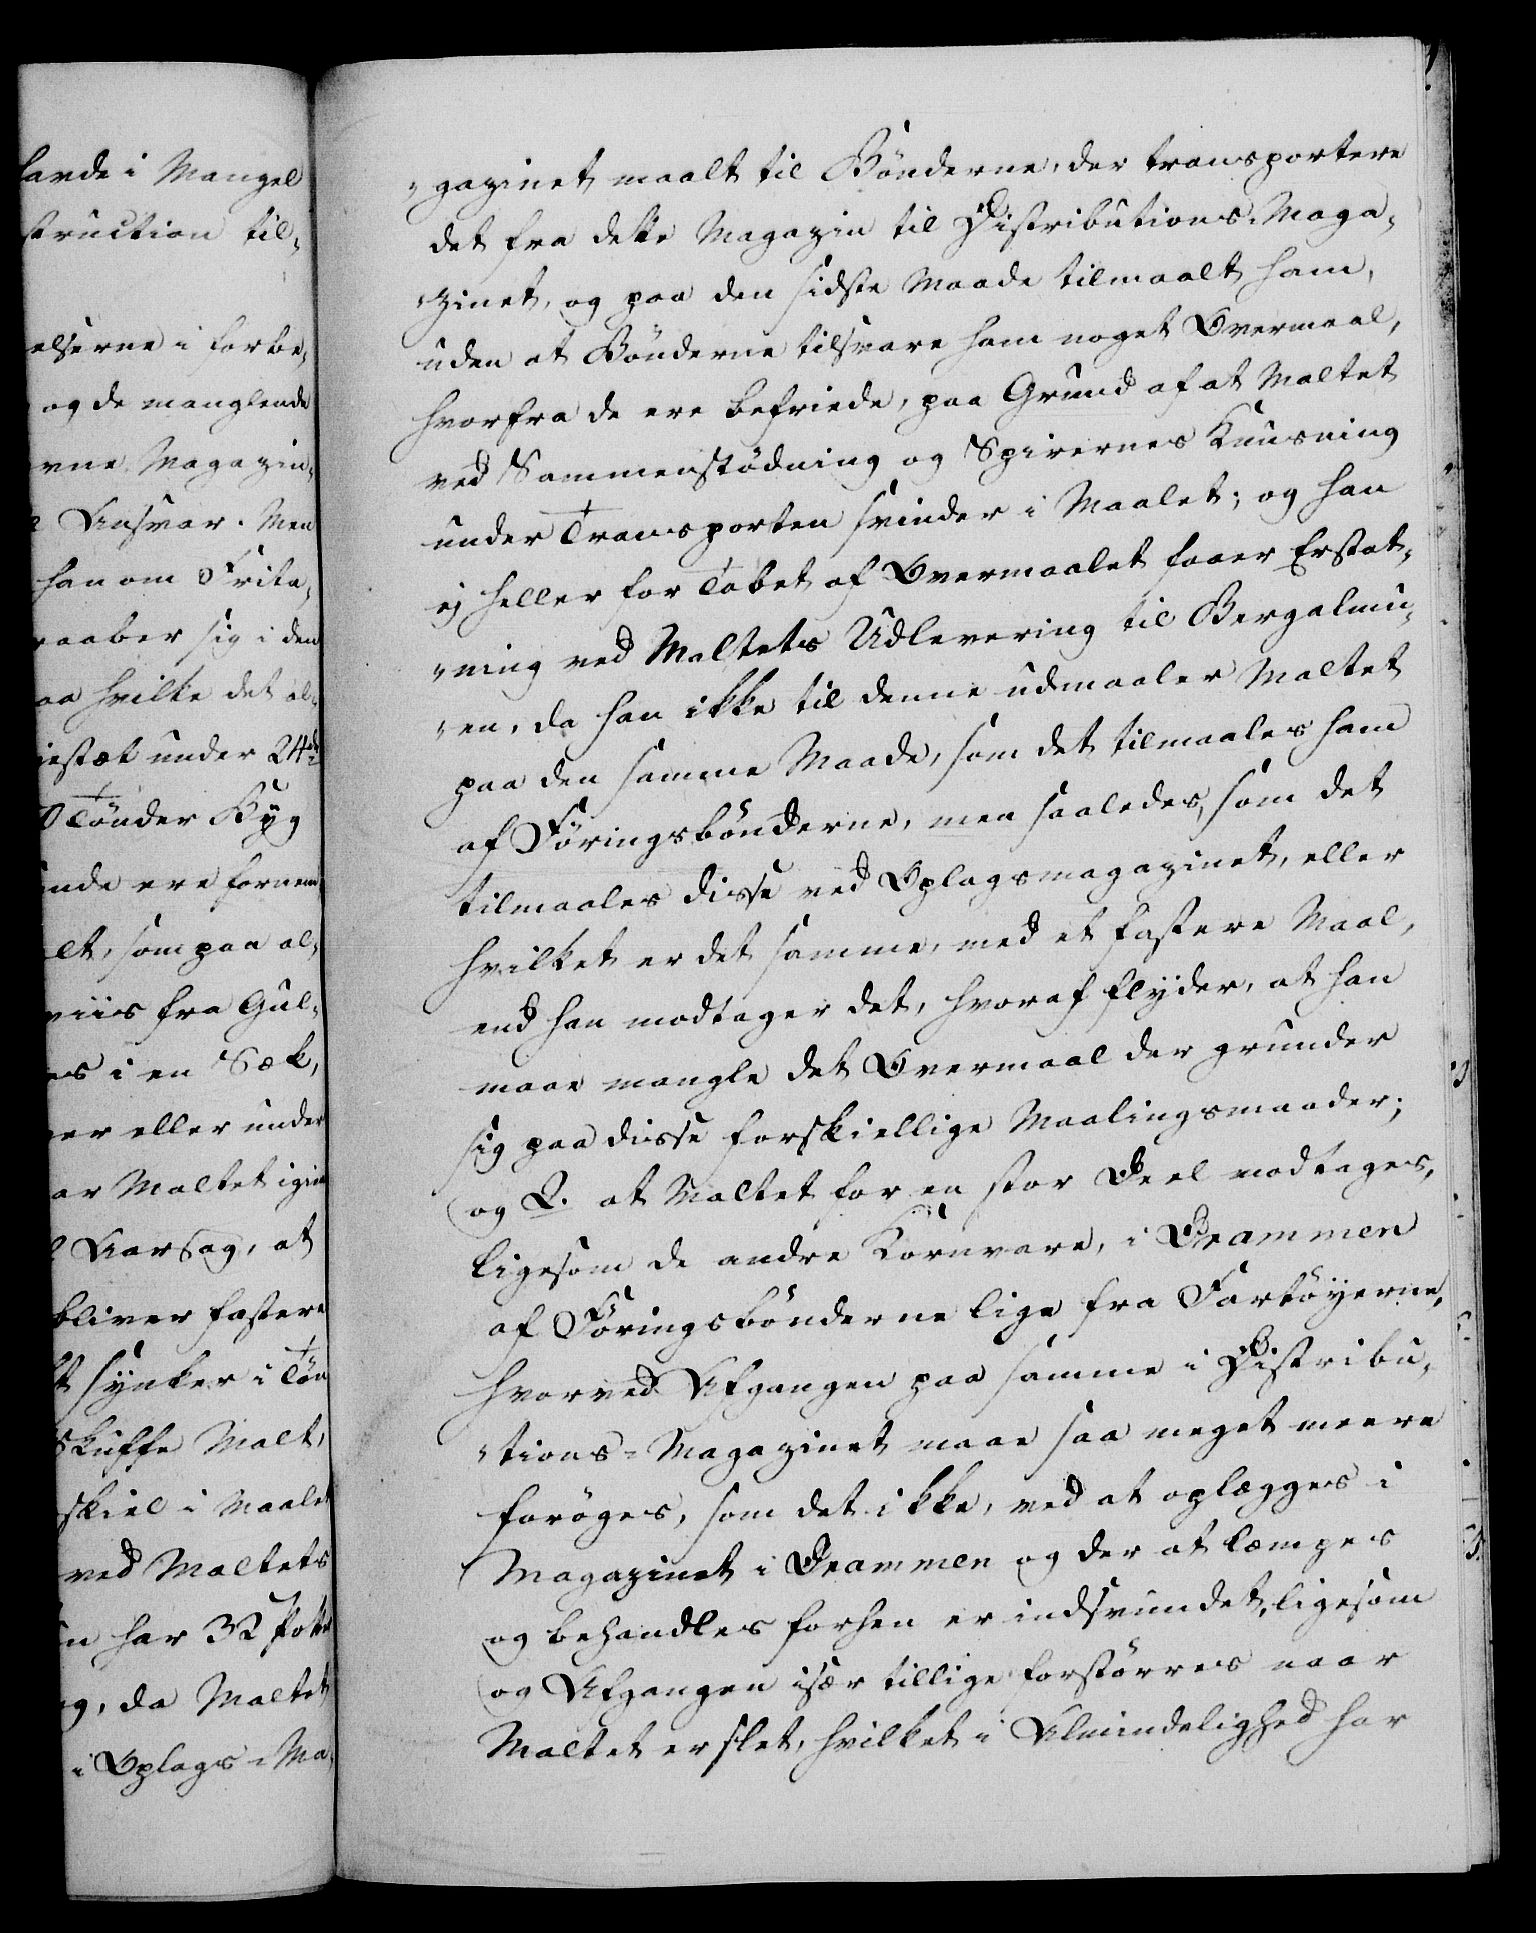 lærde i Mangel
struction til-
elserne i forbe-
og de manglende
erne Magazin-
Ansvar. Men
han om Frita-
raaber sig i den
aa hvilke det al-
iestæt under 24de
0 Tönder Byg
ende ere fornem
lt, som paa al-
viis fra Gul-
es i en Sæk,
er eller under
ar Maltet igien
Aarsag, at
bliver fastere
t synker i Tön
Skuffe Malt,
skiel i Maalet
ved Maltets
n har 32 Potter
g, da Maltet
i Oplags-Ma-
-gazinet, maalt til Bönderne, der transportere
det fra dette Magazin til Distributions-Maga-
-zinet, og paa den sidste Maade tilmaalt ham,
uden at Bönderne tilsvare ham noget Overmaal,
hvorfra de ere befriede, paa Grund af at Maltet
ved Sammenstödning og Spirernes Knusning
under Transporten svinder i Maalet; og han
ej heller for Tabet af Overmaalet faaer Erstat-
-ning ved Maltets Udlevering til Bergalmu-
-en, da han ikke til denne udmaaler Maltet
paa den samme Maade, som det tilmaales ham
af Föringsbönderne, men saaledes, som det
tilmaales disse ved Oplagsmagazinet, eller
hvilket er det samme, med et fastere Maal,
end han modtager det, hvoraf flyder, at han
maae mangle det Overmaal der grunder
sig paa disse forskiellige Maalingsmaader;
og 2. at Maltet for en stor Deel modtages,
ligesom de andre Kornvare, i Drammen
af Föringsbönderne lige fra Fartöyerne,
hvorved Afgangen paa samme i Distribu-
-tions-Magazinet maae saa meget meere
foröges, som det ikke, ved at oplægges i
Magazinet i Drammen og der at læmpes
og behandles forhen er indsvundet, ligesom
og Afgangen især tillige forstörres naar
Maltet er slet, hvilket i Almindelighed har